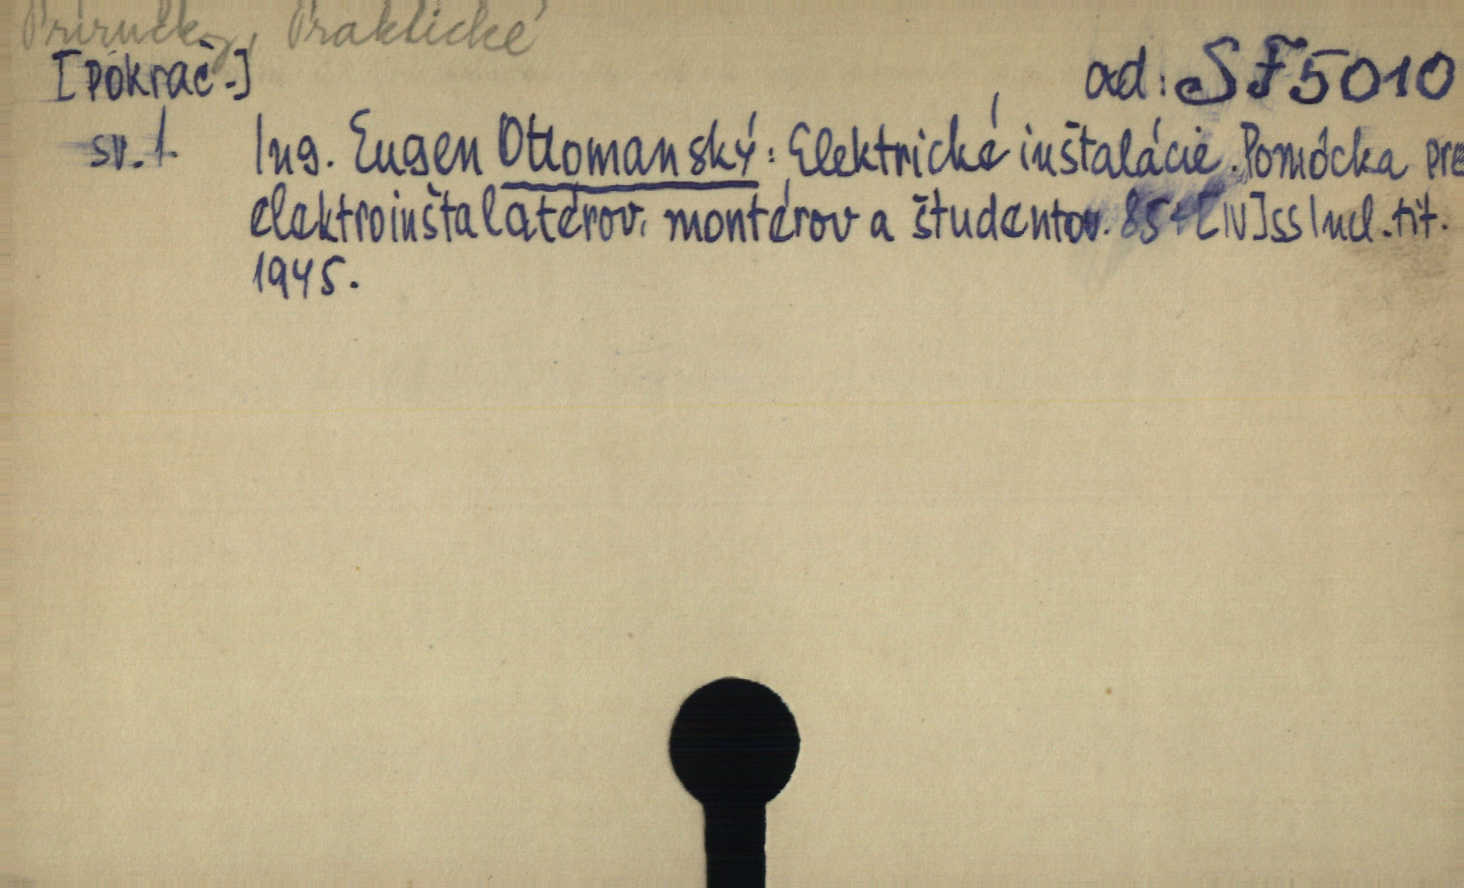 Príručky, Praktické
[Pokrač.]
ad: SF5010
sv. 1. Ing. Eugen Ottomanský: Elektrické inštalácie. Pomôcka pre
elektroinštalatérov, montérov a študentov. 85+[IV]ss Incl. tit.
1945.